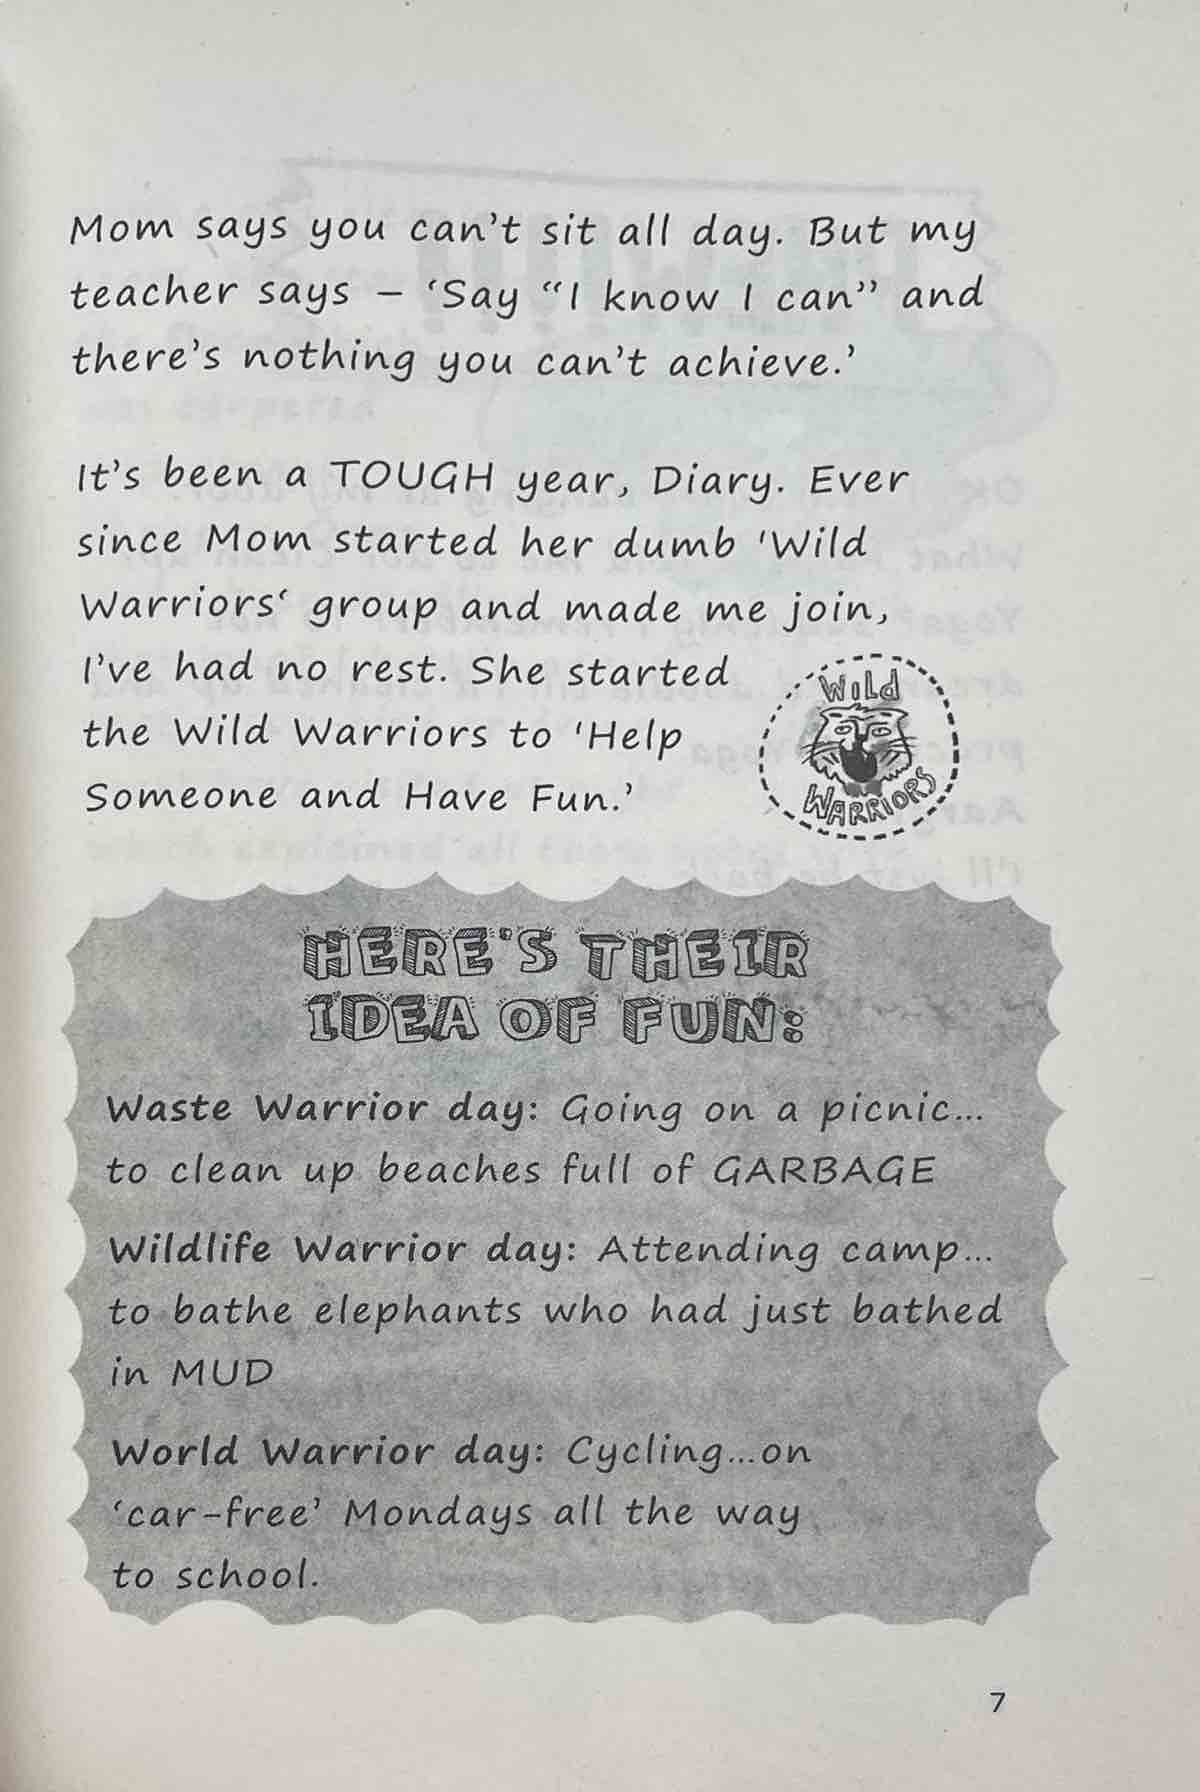 Mom says you can't sit all day. But my
teacher says – ‘Say “I know I can” and
there's nothing you can't achieve.’
It's been a TOUGH year, Diary. Ever
since Mom started her dumb 'Wild
Warriors‘ group and made me join,
I've had no rest. She started
the Wild Warriors to ‘Help
Someone and Have Fun.’
Wild
WARRIORS
HERE'S THEIR
IDEA OF FUN:
Waste Warrior day: Going on a picnic...
to clean up beaches full of GARBAGE
Wildlife Warrior day: Attending camp...
to bathe elephants who had just bathed
in MUD
World Warrior day: Cycling...on
‘car-free’ Mondays all the way
to school.
7